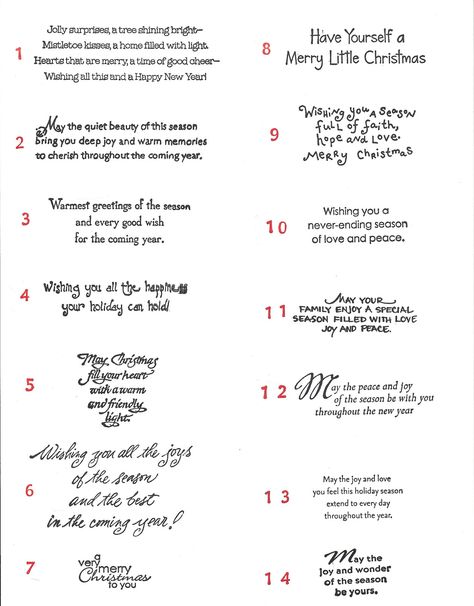 1
Jolly surprises, a tree shining bright—
Mistletoe kisses, a home filled with light.
Hearts that are merry, a time of good cheer—
Wishing all this and a Happy New Year!
2
May the quiet beauty of this season
bring you deep joy and warm memories
to cherish throughout the coming year.
3
Warmest greetings of the season
and every good wish
for the coming year.
4
Wishing you all the happiness
your holiday can hold!
5
May Christmas
fill your heart
with a warm
and friendly
light.
6
Wishing you all the joys
of the season
and the best
in the coming year!
7
a very
merry
Christmas
to you
8
Have Yourself a
Merry Little Christmas
9
Wishing you a season
full of faith,
hope and love.
Merry Christmas
10
Wishing you a
never-ending season
of love and peace.
11
MAY YOUR
FAMILY ENJOY A SPECIAL
SEASON FILLED WITH LOVE
JOY AND PEACE.
12
May the peace and joy
of the season be with you
throughout the new year
13
May the joy and love
you feel this holiday season
extend to every day
throughout the year.
14
May the
joy and wonder
of the season
be yours.